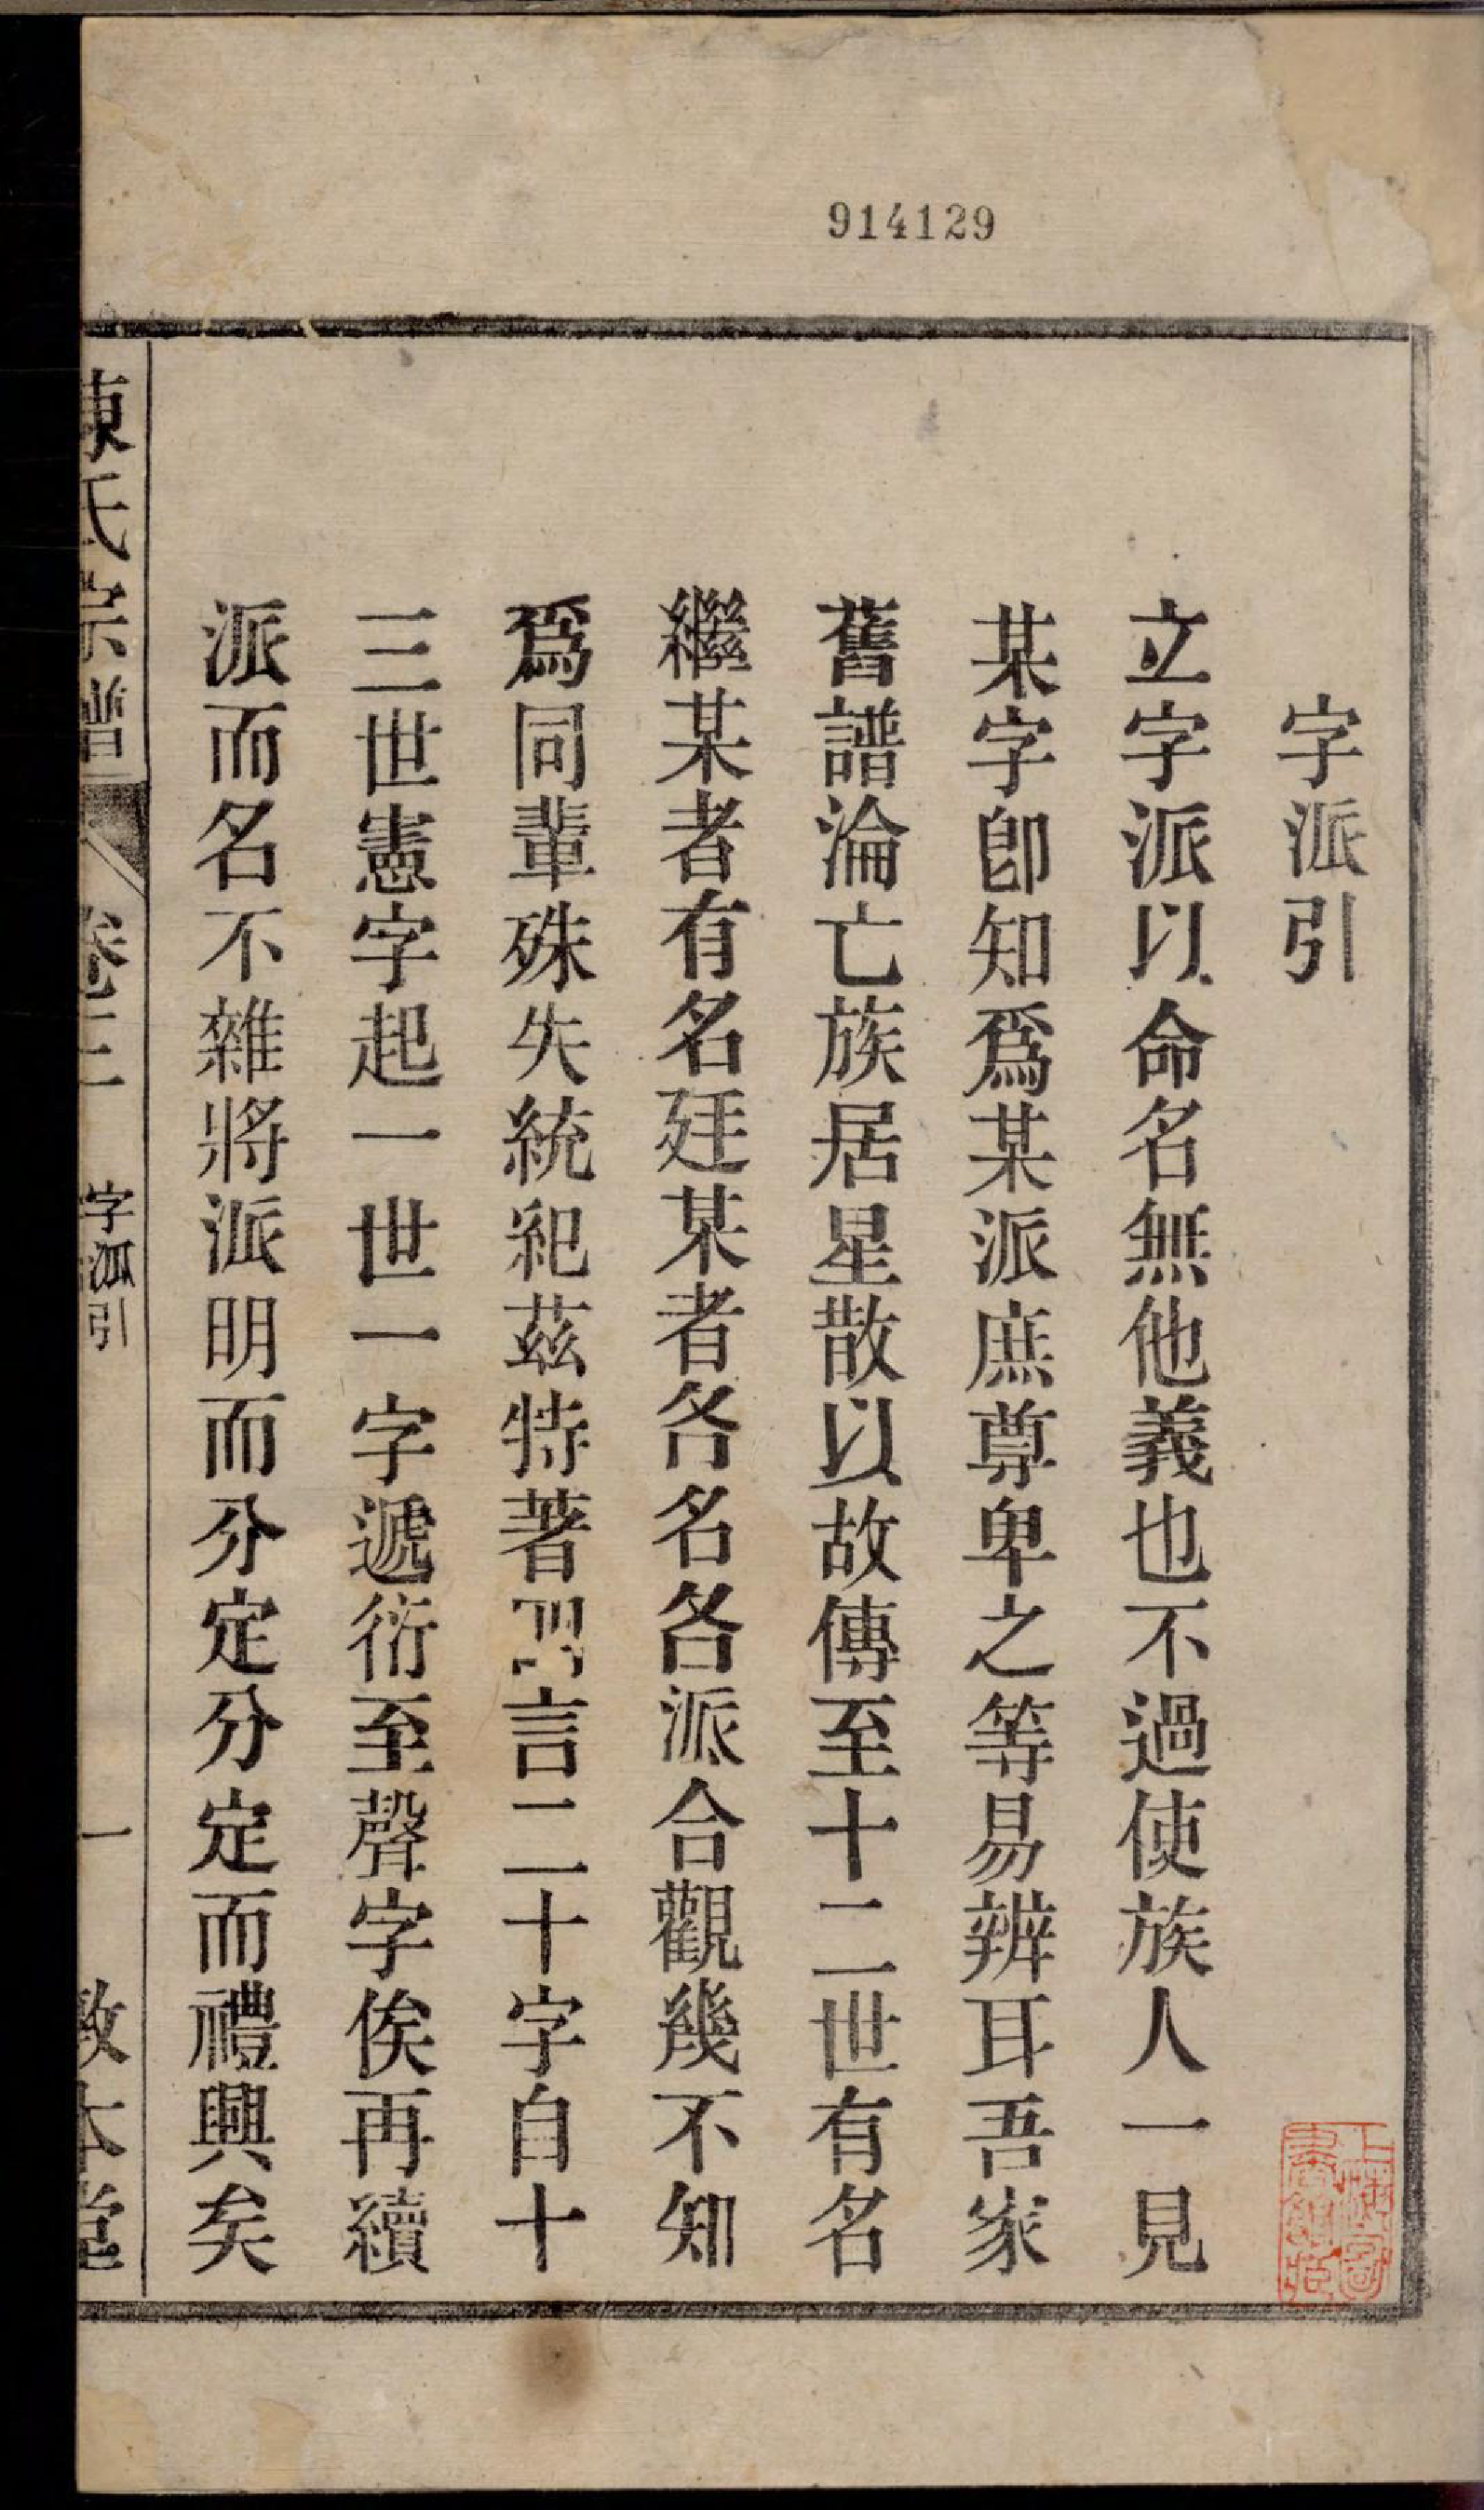 914129
字派引
立字派以命名無他義也不過使族人一見
某字卽知爲某派庶尊卑之等易辨耳吾家
舊譜淪亡族居星散以故傳至十二世有名
繼某者有名廷某者各名各派合觀幾不知
爲同輩殊失統紀茲特著四言二十字自十
三世憲字起一世一字遞衍至聲字俟再續
派而名不雜將派明而分定分定而禮興矣
陳氏宗譜
卷三
字派引
一
敦本堂
上海圖書館藏